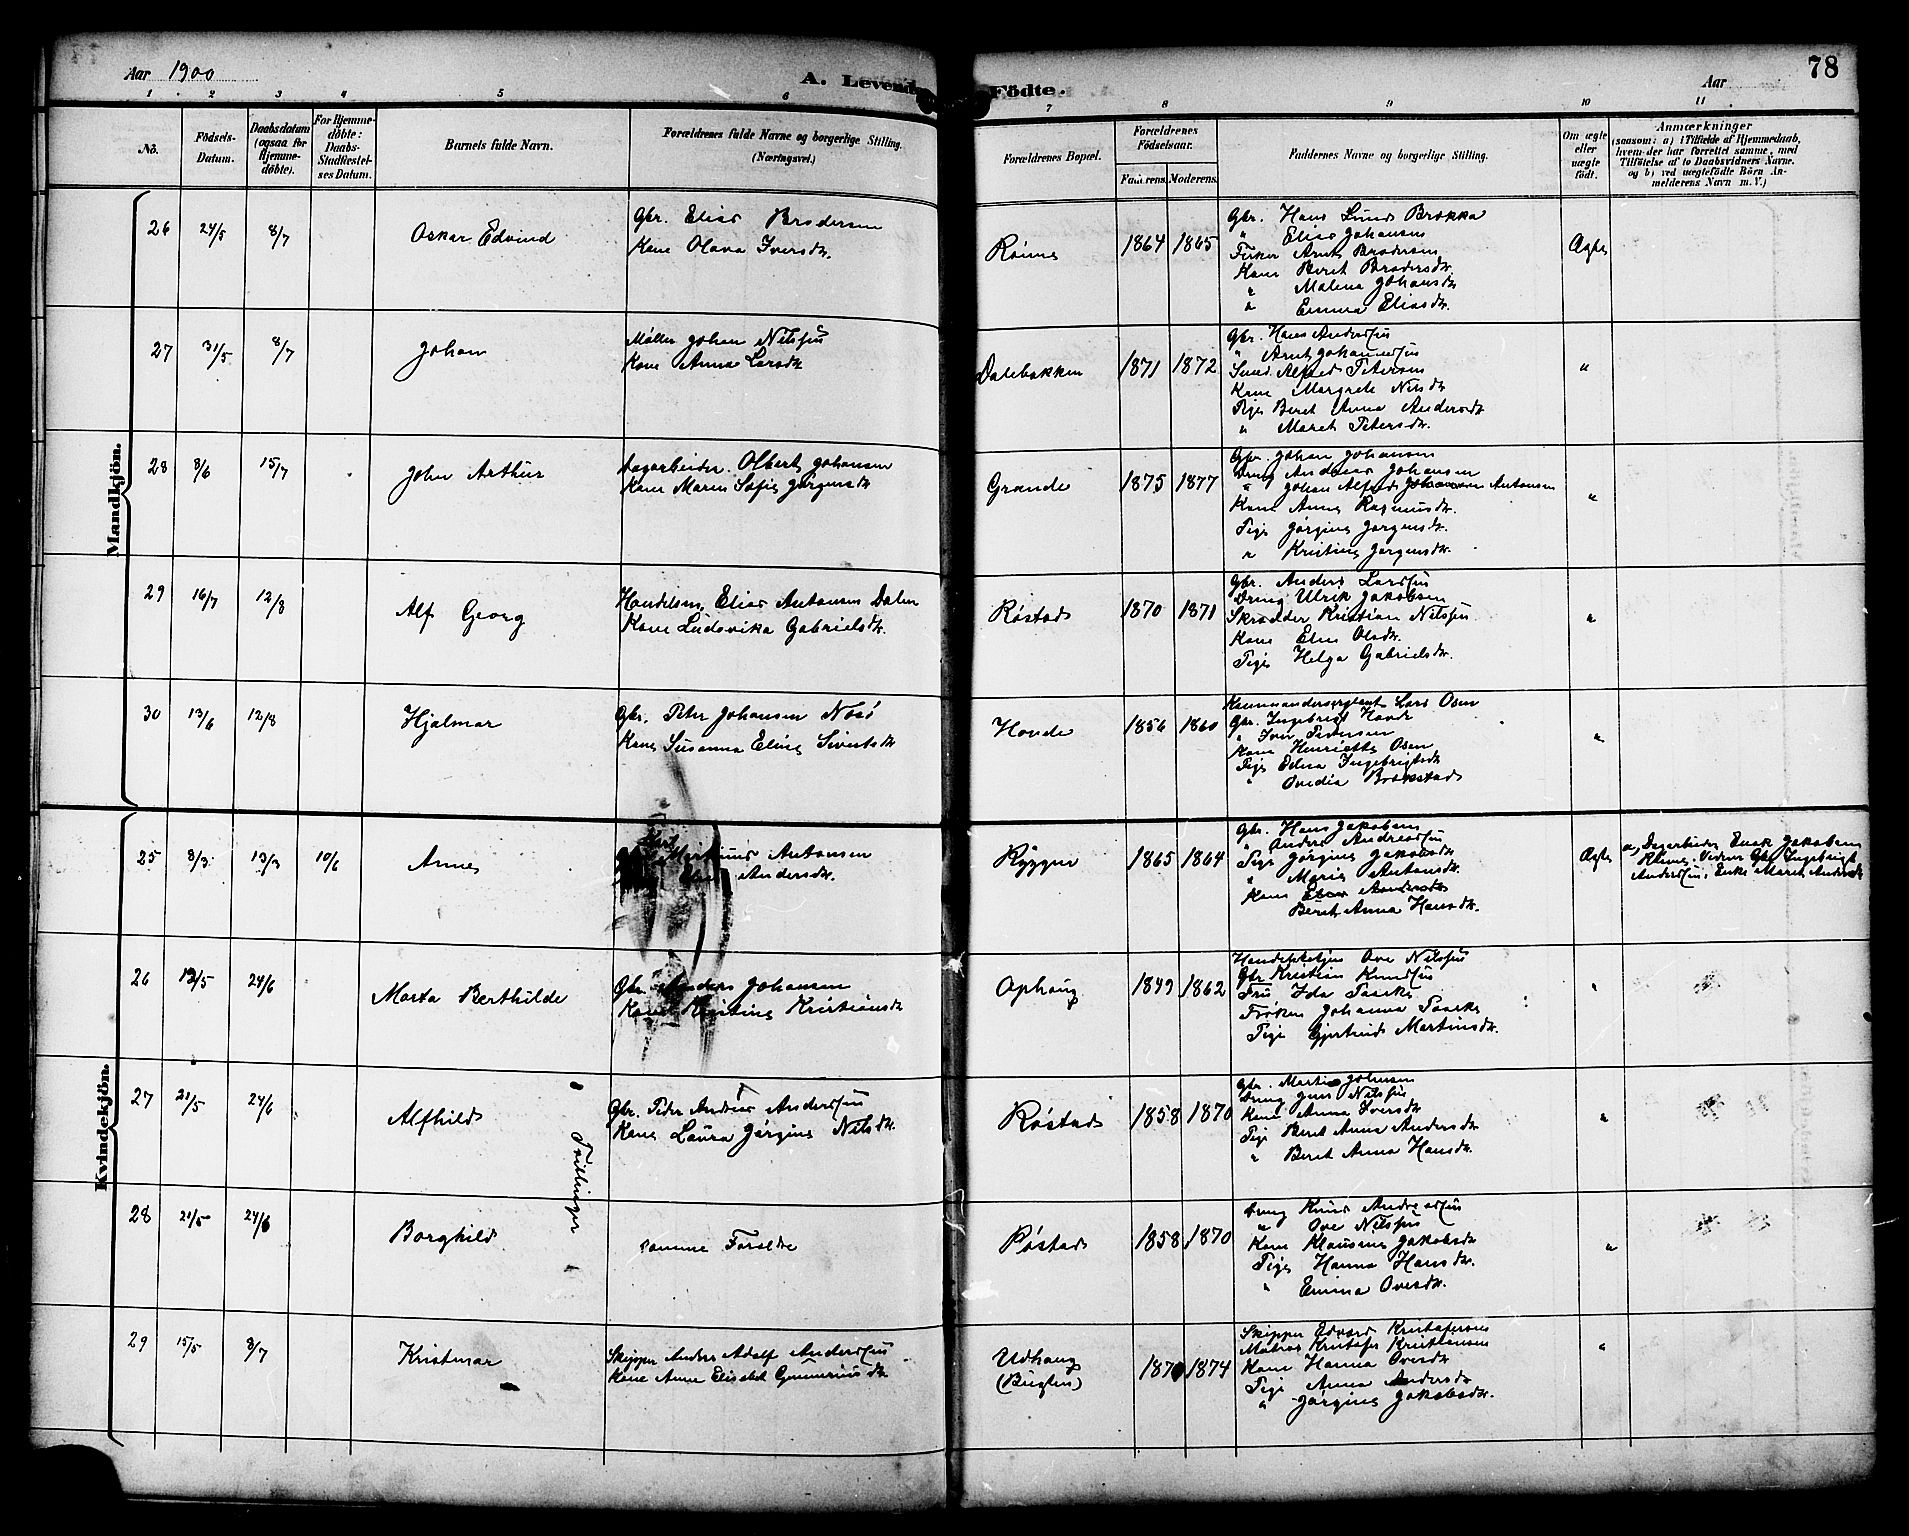 Aar 1900
A. Levende
Födte.
Aar
78
1 2 3 4 5 6 7 8 9 10 11
Nô.
Födsels-
Datum.
Daabsdatum
(ogsaa for
Hjemme-
döbte).
For Hjemme-
döbte:
Daabs-
Stadfæstel-
ses Datum.
Barnets fulde Navn.
Forældrenes fulde Navne og borgerlige Stilling.
(Næringsvei.)
Forældrenes Bopæl.
Forældrenes
Födselsaar.
Faderens. Moderens.
Faddernes Navne og borgerlige Stilling.
Om ægte
eller
uægte
födt.
Anmærkninger
(saasom: a) i Tilfælde af Hjemmedaab,
hvem der har forrettet samme, med
Tilföielse af to Daabsvidners Navne,
og b) ved uægtefödte Börn An-
melderens Navn m. V.)
Mandkjön.
26 24/5 8/7
Oskar Edvind
Gbr. Elias Brodersen
Kone Olava Iversdr.
1864 1865
Gbr. Hans Lund Brekka
" Elias Johansen
Fisker Arnt Brodersen
Kone Beret Brodersdr.
" Malena Johansdr.
" Emma Eliasdr.
Ægte
27 31/5 8/7
Johan
Møller Johan Nilssen
Kone Anna Larsdr.
Dalebakken
1871 1872
Gbr. Hans Anderssen
" Arnt Johannessen
Smed Alfred Petersen
Kone Margrete Nilsdr.
Pige Beret Anna Andersdr.
" Maret Petersdr.
"
28 8/6 15/7
John Arthur
Dagarbeider Olbert Johansen
Kone Maren Sofie Jørgensdr.
Grande
1875 1877
Gbr. Johan Johansen
Dreng Andreas Johansen
" Johan Alfred Antonsen
Kone Anne Rasmusdr.
Pige Jørgine Jørgensdr.
" Kristine Jørgensdr.
"
29 16/7 12/8
Alf Georg
Handelsm. Elias Antonsen Dalen
Kone Ludovika Gabrielsdr.
Røstad
1870 1871
Gbr. Anders Larssen
Dreng Ulrik Jakobsen
Skrædder Kristian Nilssen
Kone Elen Olsdr.
Pige Helga Gabrielsdr.
"
30 13/6 12/8
Hjalmar
Gbr. Peter Johansen Nesø
Kone Susanna Eline Sivertsdr.
Hovde
1856 1860
Kommandersergeant Lars Osen
Gbr. Ingebrigt Hovde
" Iver Pedersen
Kone Henriette Osen
Pige Edna Ingebrigtsdr.
" Ovedia Brækstad
"
Kvindekjön.
25 8/3 13/3 10/6
Anne
Martinus Antonsen
Andersdr.
Ryggen
1865 1864
Gbr. Hans Jakobsen
" Anders Andreassen
Pige Jørgine Jakobsdr.
" Marie Antonsdr.
Kone Elen Andersdr.
Beret Anna Hansdr.
Ægte
a, Dagarbeider Enok Jakobsen
Vidner Gbr. Ingebrigt
Anderssen, Enke Maret Andersdr.
26 12/5 24/6
Marta Berthilde
Gbr. Anders Johansen
Kone Kristine Kristiansdr.
Ophaug
1849 1862
Handelsbetjent Ove Nilssen
Gbr. Kristian Knudssen
Fru Ida
Frøken Johanna
Pige Gjertrud Martinsdr.
"
27 21/5 24/6
Alfhild
Tvillinger
Gbr. Peder Andreas Anderssen
Kone Laura Jørgine Nilsdr.
Røstad
1858 1870
Gbr. Martin Johnsen
Dreng Jens Nilssen
Kone Anna Iversdr.
Pige Beret Anna Andersdr.
" Beret Anna Hansdr.
"
28 21/5 24/6
Borghild
samme Forældre
Røstad
1858 1870
Dreng Knud Andreassen
" Ove Nilssen
Kone Klausine Jakobsdr.
Pige Hanna Hansdr.
" Emma Ovesdr.
"
29 15/5 8/7
Kristmar
Skipper Anders Adolf Anderssen
Kone Anne Elisabet Gunneriusdr.
Udhaug
1874
Skipper Edvard Kristofersen
Matros Kristofer Kristiansen
Kone Hanna Ovesdr.
Pige Anna Andersdr.
" Jørgine Jakobsdr.
"